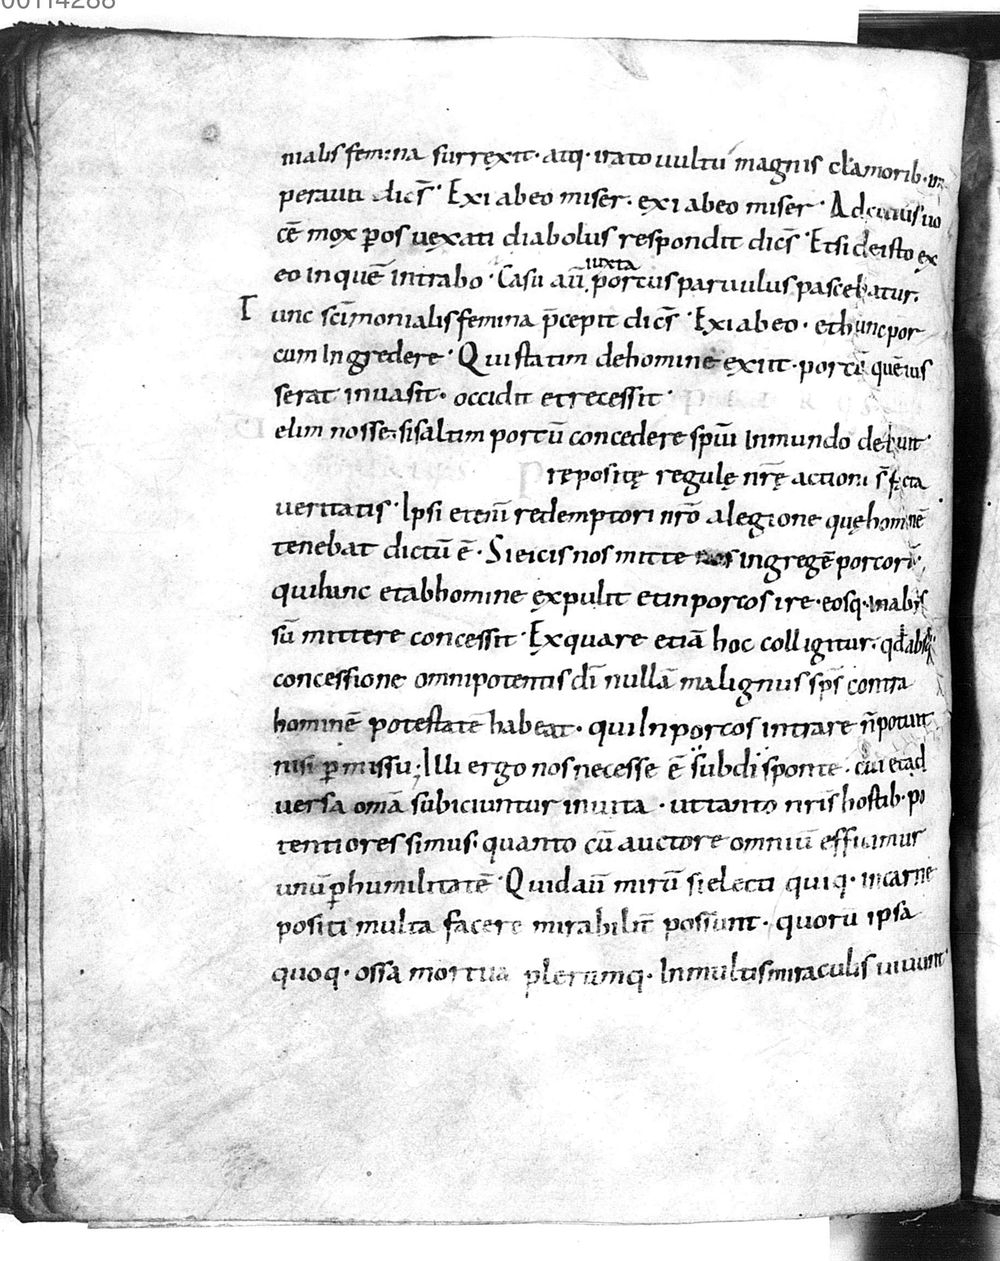 00114288
nialis femina surrexit· atq· irato uultu magnis clamorib· im
perauit dics̄· Exi abeo miser· exi abeo miser· Ad cuius uo
cē mox p̱os uexati diabolus respondit dics̄· Et si de isto ex
eo in quē intrabo· Casu aū iuxta portus paruulus pascebatur·
Tunc sc̄imonialis femina p̄cepit dics̄· Exi abeo· et hunc por
cum Ingredere· Qui statim de homine exiit· portū quē ius
serat inuasit· occidit et recessit·
elim nosse· si saltim portū concedere spūi Inmundo debuit·
repositę regulę nr̄ę actioni s̄ facta
ueritatis· Ipsi etenī redemptori nr̄o a legione quę hominē
tenebat dictū ē· Si eicis nos mitte nos in gregē portorū·
qui hunc et ab homine expulit et in portos ire· eosq· in abis
sū mittere concessit· Ex qua re etiā hoc colligitur· qd̄ absq·
concessione omnipotentis dī nullā malignus sps̄ contra
hominē potestatē habeat· qui In portos intrare n̄ potuit
nisi p̱missu; Illi ergo nos necesse ē subdi sponte· cui et ad
uersa om̄a subiciuntur inuita· ut tanto nr̄is hostib· po
tentiores simus· quanto cū auctore omniū efficimur
unū p̱ humilitatē· Quid aū mirū si electi quiq· in carne
positi multa facere mirabilit̄ possunt· quorū ipsa
quoq· ossa mortua plerumq· In multis miraculis uiuunt